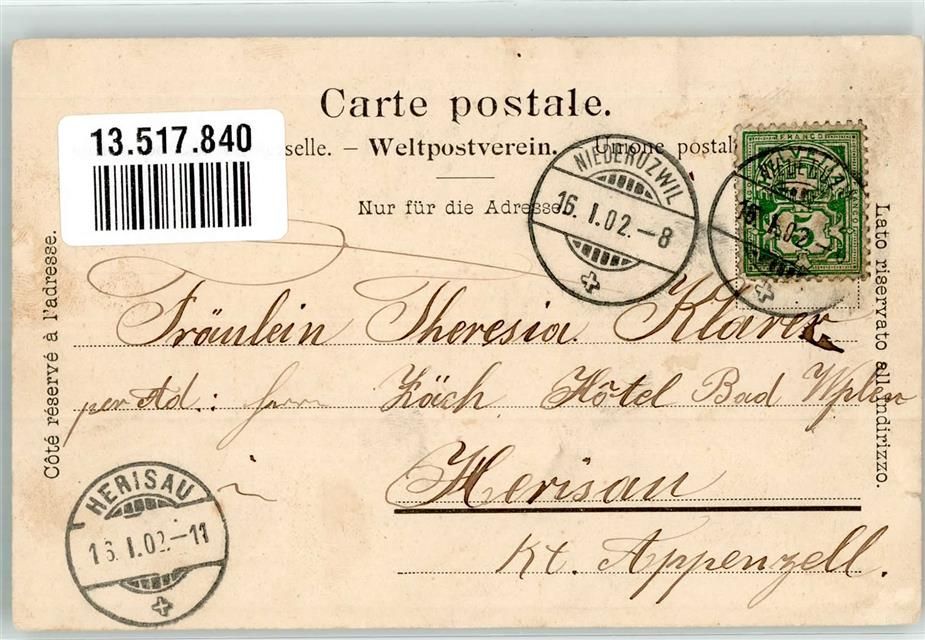 Carte postale.
13.517.840
selle. – Weltpostverein. Unione postal
Nur für die Adresse
NIEDERUZWIL
16. I. 02. – 8
FRANCO
5
Côté réservé à l'adresse.
Lato riservato all'indirizzo.
Fräulein Theresia Klarer
per Ad.: Herrn Zäch, Hôtel Bad
in
Herisau
Kt. Appenzell.
HERISAU
16. I. 02. – 11